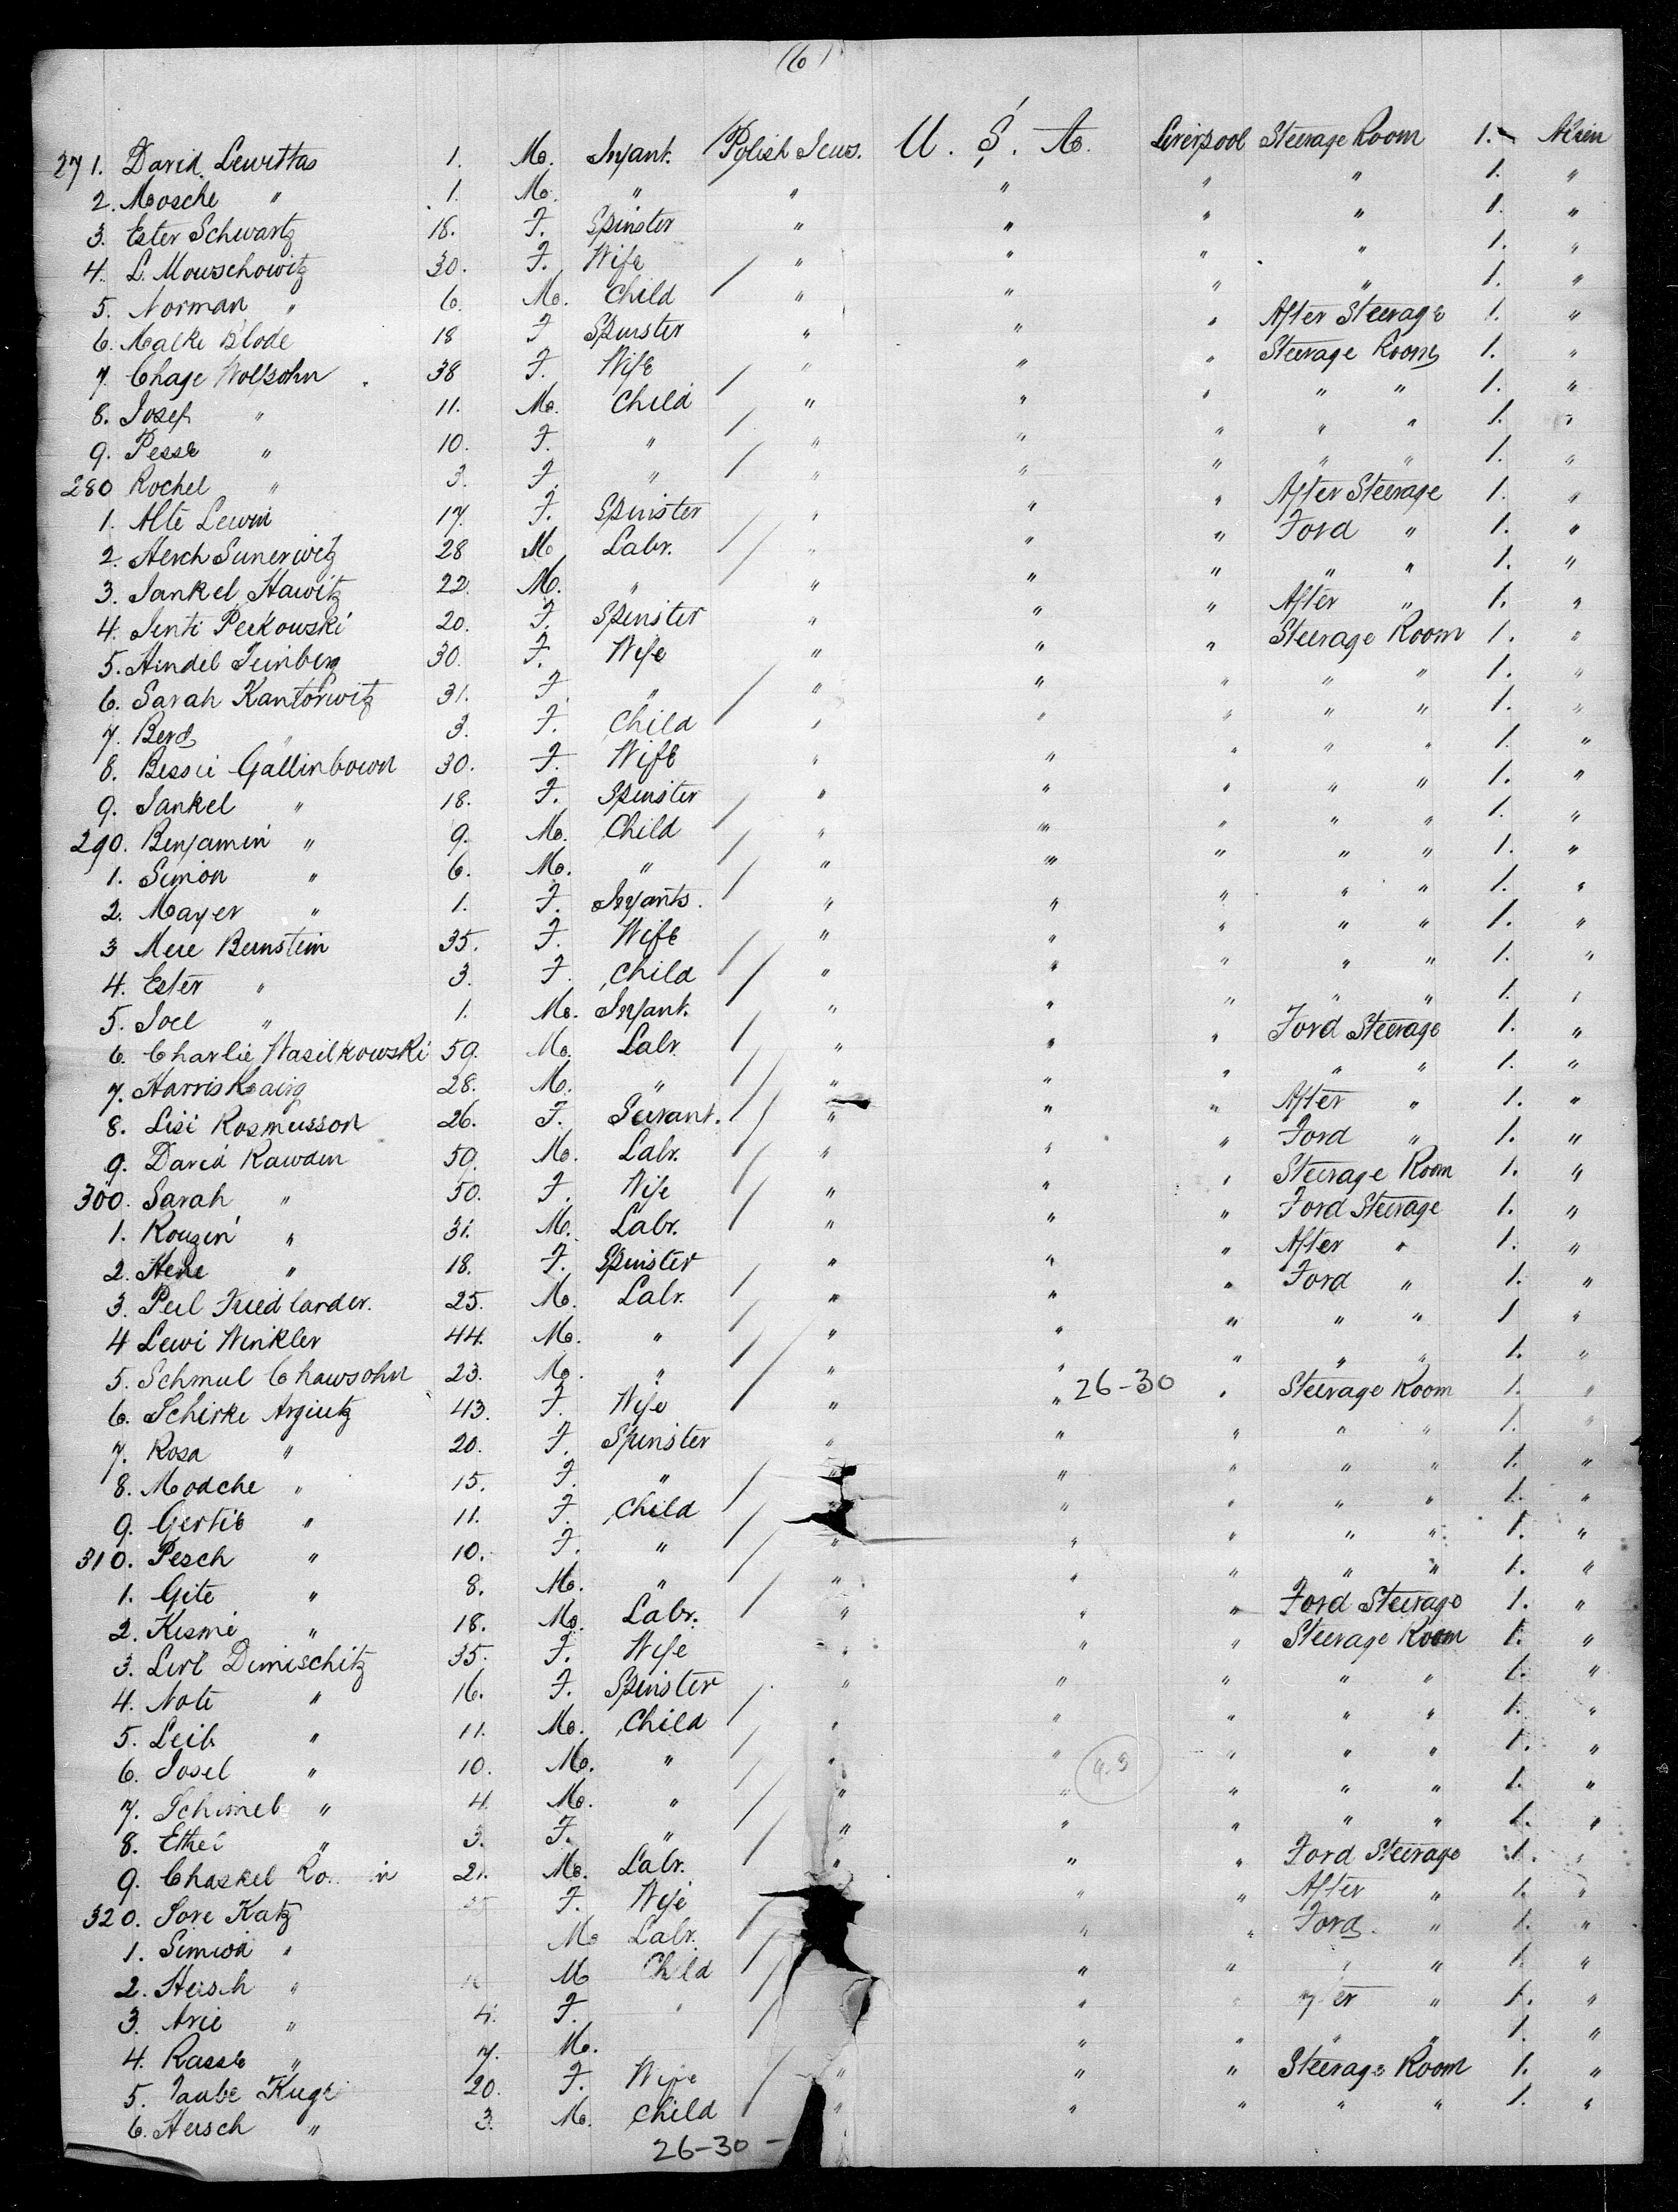 (6)
271. David Lewittas 1. M. Infant. Polish Jews. U. S. A. Liverpool Steerage Room 1. Nein
2. Mosche " 1. M. " " " " " 1. "
3. Ester Schwartz 18. F. Spinster " " " " 1. "
4. L. Mowschowitz 30. F. Wife " " " " 1. "
5. Norman " 6. M. Child " " " " 1. "
6. Malke Blode 18 F Spinster " " " After Steerage 1. "
7. Chage Wolfsohn 38 F. Wife " " " Steerage Room 1. "
8. Josef " 11. M. Child " " " " " 1. "
9. Pesse " 10. F. " " " " " " 1. "
280 Rochel " 3. F. " " " " " " 1. "
1. Alte Lewin 17. F. Spinster " " " After Steerage 1. "
2. Herch Sunerwitz 28 M Labr. " " " Ford " 1. "
3. Jankel Hawitz 22. M. " " " " " " 1. "
4. Jenti Perkowski 20. F. Spinster " " " After " 1. "
5. Hindel Feinberg 30. F. Wife " " " Steerage Room 1. "
6. Sarah Kantorwitz 31. F. " " " " " " 1. "
7. Berd " 3. F. Child " " " " " 1. "
8. Bessie Gallinbown 30. F. Wife " " " " " 1. "
9. Jankel " 18. F. Spinster " " " " " 1. "
290. Benjamin " 9. M. Child " " " " " 1. "
1. Simon " 6. M. " " " " " " 1. "
2. Mayer " 1. F. Infants. " " " " " 1. "
3 Mere Bernstein 35. F. Wife " " " " " 1. "
4. Ester " 3. F. Child " " " " " 1. "
5. Joel " 1. M. Infant. " " " " " 1. "
6. Charlie Wasilkowski 59. M. Labr. " " " Ford Steerage 1. "
7. Harris Kairg 28. M. " " " " " " 1. "
8. Lisi Rosmusson 26. F. Servant. " " " After " 1. "
9. David Rawden 50. M. Labr. " " " Ford " 1. "
300. Sarah " 50. F. Wife " " " Steerage Room 1. "
1. Rouzen " 31. M. Labr. " " " Ford Steerage 1. "
2. Hene " 18. F. Spinster " " " After " 1. "
3. Perl Friedlarder. 25. M. Labr. " " " Ford " 1. "
4 Lewi Winkler 44. M. " " " " " " 1 "
5. Schmul Chawsohn 23. M. " " " " " " 1. "
6. Schirke Argiutz 43. F. Wife " " 26-30 " Steerage Room 1. "
7. Rosa " 20. F. Spinster " " " " " 1. "
8. Modche " 15. F. " " " " " " 1. "
9. Gertie " 11. F. Child " " " " " 1. "
310. Pesch " 10. F. " " " " " " 1. "
1. Gite " 8. M. " " " " " " 1. "
2. Kismi " 18. M. Labr. " " " Ford Steerage 1. "
3. Lirl Dimischitz 35. F. Wife " " " Steerage Room 1. "
4. Note " 16. F. Spinster " " " " " 1. "
5. Leib " 11. M. Child " " " " " 1. "
6. Josel " 10. M. " " " " " " 1. "
7. Schimel " 4. M. " " " " " " 1. "
8. Ethel " 3. F. " " " " " " 1. "
9. Chaskel 21. M. Labr. " " " Ford Steerage 1. "
320. Sore Katz F. Wife " " After " 1. "
1. Simion " M. Labr. " " Ford " 1. "
2. Hersch " M Child " " " " 1. "
3. Arie " 4. F. " " " " 1. "
4. Rassle " 7. M. " " " " 1. "
5. Taube 20. F. Wife " " " Steerage Room 1. "
6. Hersch " 3. M. Child " " " " " 1. "
26-30 -